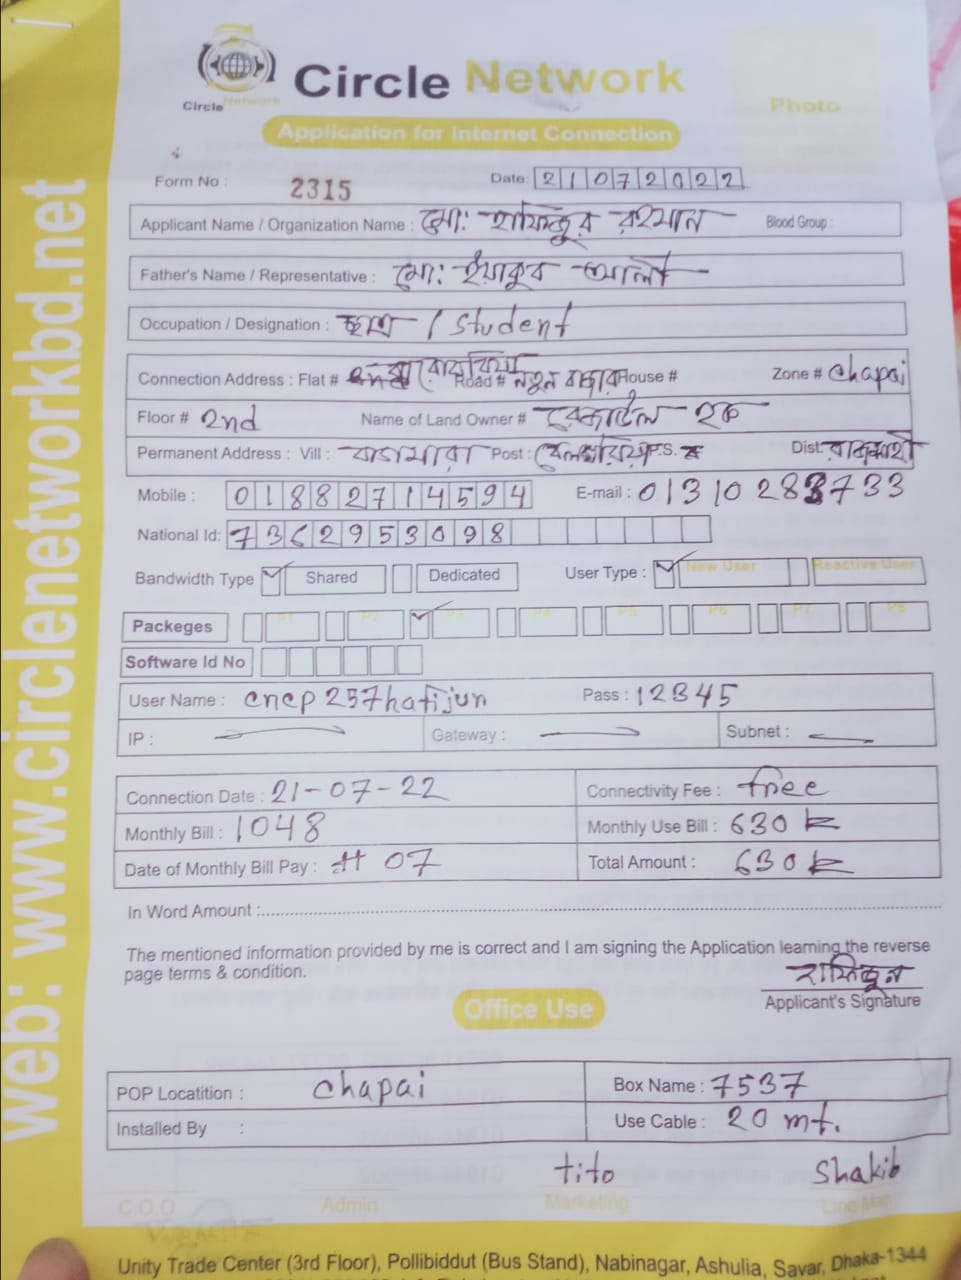 Circle Network
Circle Network
Photo
Application for Internet Connection
Form No : 2315 Date: 21072022
Applicant Name / Organization Name : মো: হাফিজুর রহমান Blood Group :
Father's Name / Representative : মো: ইয়াকুব আলী
Occupation / Designation : ছাত্র / Student
Connection Address : Flat # Road # নতুন বাজার House # Zone # chapai
Floor # 2nd Name of Land Owner # হক
Permanent Address : Vill : Post : P.S. Dist. রাজশাহী
Mobile : 01882714594 E-mail : 01310283733
National Id: 7362953098
Bandwidth Type Shared Dedicated User Type : New User Reactive User
Packeges P1 P2 P3 P4 P5 P6 P7 P8
Software Id No
User Name : cncp257hafijun Pass : 12345
IP : Gateway : Subnet :
Connection Date : 21-07-22 Connectivity Fee : free
Monthly Bill : 1048 Monthly Use Bill : 630
Date of Monthly Bill Pay : 07 Total Amount : 630
In Word Amount :
The mentioned information provided by me is correct and I am signing the Application learning the reverse
page terms & condition.
হাফিজুর
Applicant's Signature
Office Use
POP Locatition : chapai Box Name : 7537
Installed By : Use Cable : 20 mt.
tito Shakib
C.O.O Admin Marketing Line Man
Unity Trade Center (3rd Floor), Pollibiddut (Bus Stand), Nabinagar, Ashulia, Savar, Dhaka-1344
web: www.circlenetworkbd.net